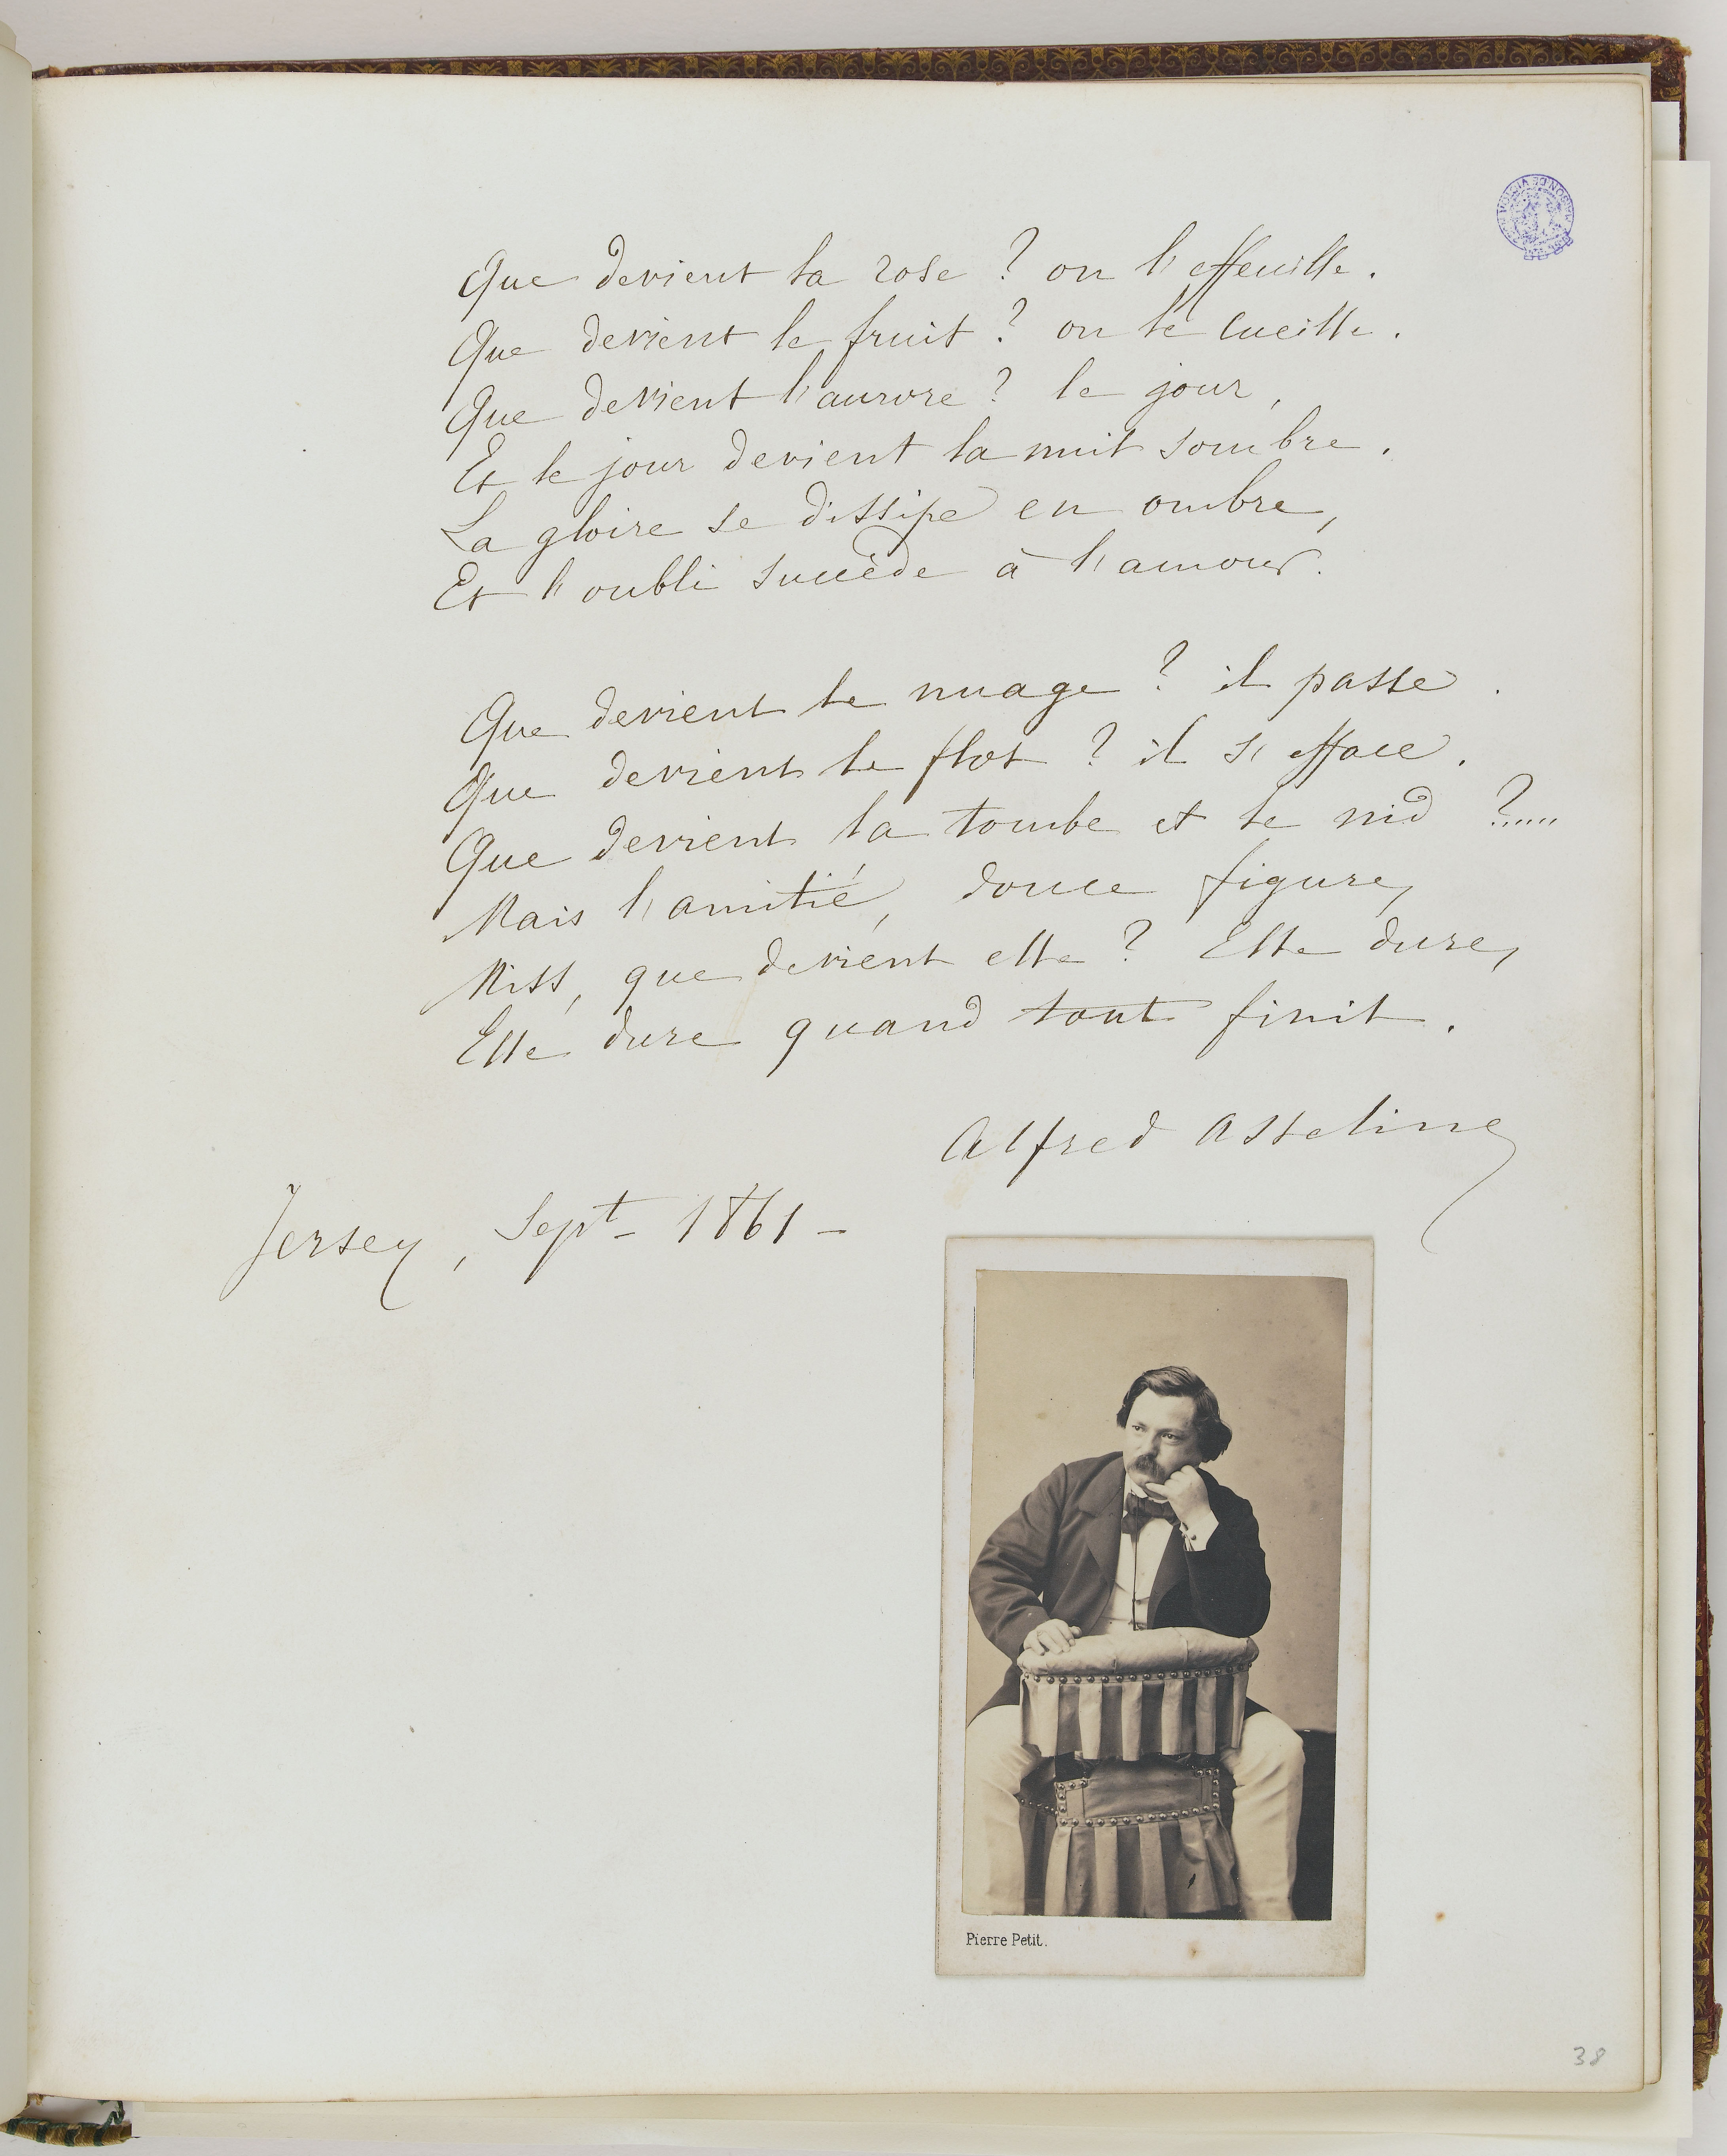 Que devient la rose ? on l'effeuille.
Que devient le fruit ? on le cueille.
Que devient l'aurore ? le jour,
Et le jour devient la nuit sombre.
La gloire se dissipe en ombre,
Et l'oubli succède à l'amour.
Que devient le nuage ? il passe.
Que devient le flot ? il s'efface.
Que devient la tombe et le nid ?.....
Mais l'amitié, douce figure,
Miss, que devient elle ? Elle dure,
Elle dure quand tout finit.
Alfred Asseline
Jersey, Sept - 1861 -
Pierre Petit.
38